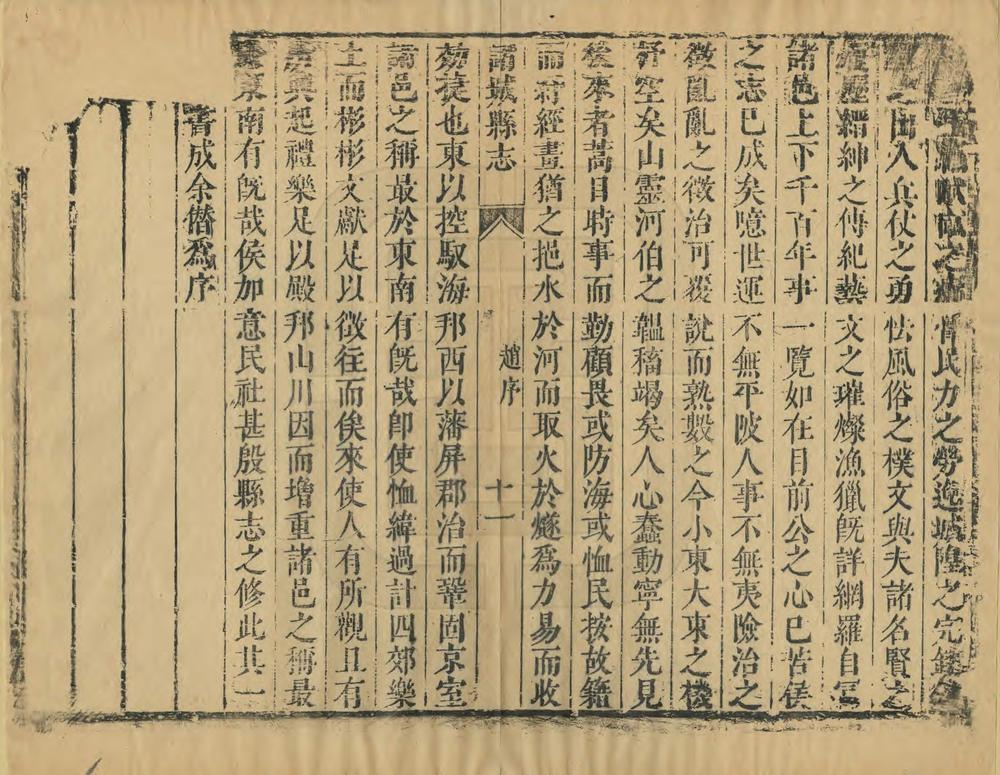 之惰民力之勞逸城隍之完缺
之出入兵仗之勇怯風俗之樸文與夫諸名賢之
歷縉紳之傳紀藝文之璀燦漁獵既詳網羅自富
諸邑上下千百年事一覽如在目前公之心已苦侯
之志已成矣噫世運不無平陂人事不無夷險治之
徵亂亂之徵治可覆說而熟數之今小東大東之機
杼空矣山靈河伯之韞穡竭矣人心蠢動寧無先見
後來者蒿目時事而勤顧畏或防海或恤民按故籍
而紆經畫猶之挹水於河而取火於燧爲力易而收
諸城縣志 趙序 十一
效捷也東以控馭海邦西以藩屏郡治而鞏固京室
諸邑之稱最於東南有既哉卽使恤緯過計四郊樂
土而彬彬文獻足以徵往而俟來使人有所觀且有
所興起禮樂足以殿邦山川因而增重諸邑之稱最
東南有既哉侯加意民社甚殷縣志之修此其一
書成余僭爲序